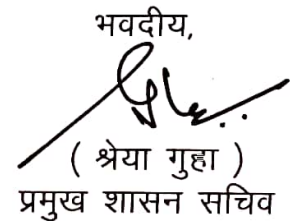 भवदीय,
( श्रेया गुहा )
प्रमुख शासन सचिव